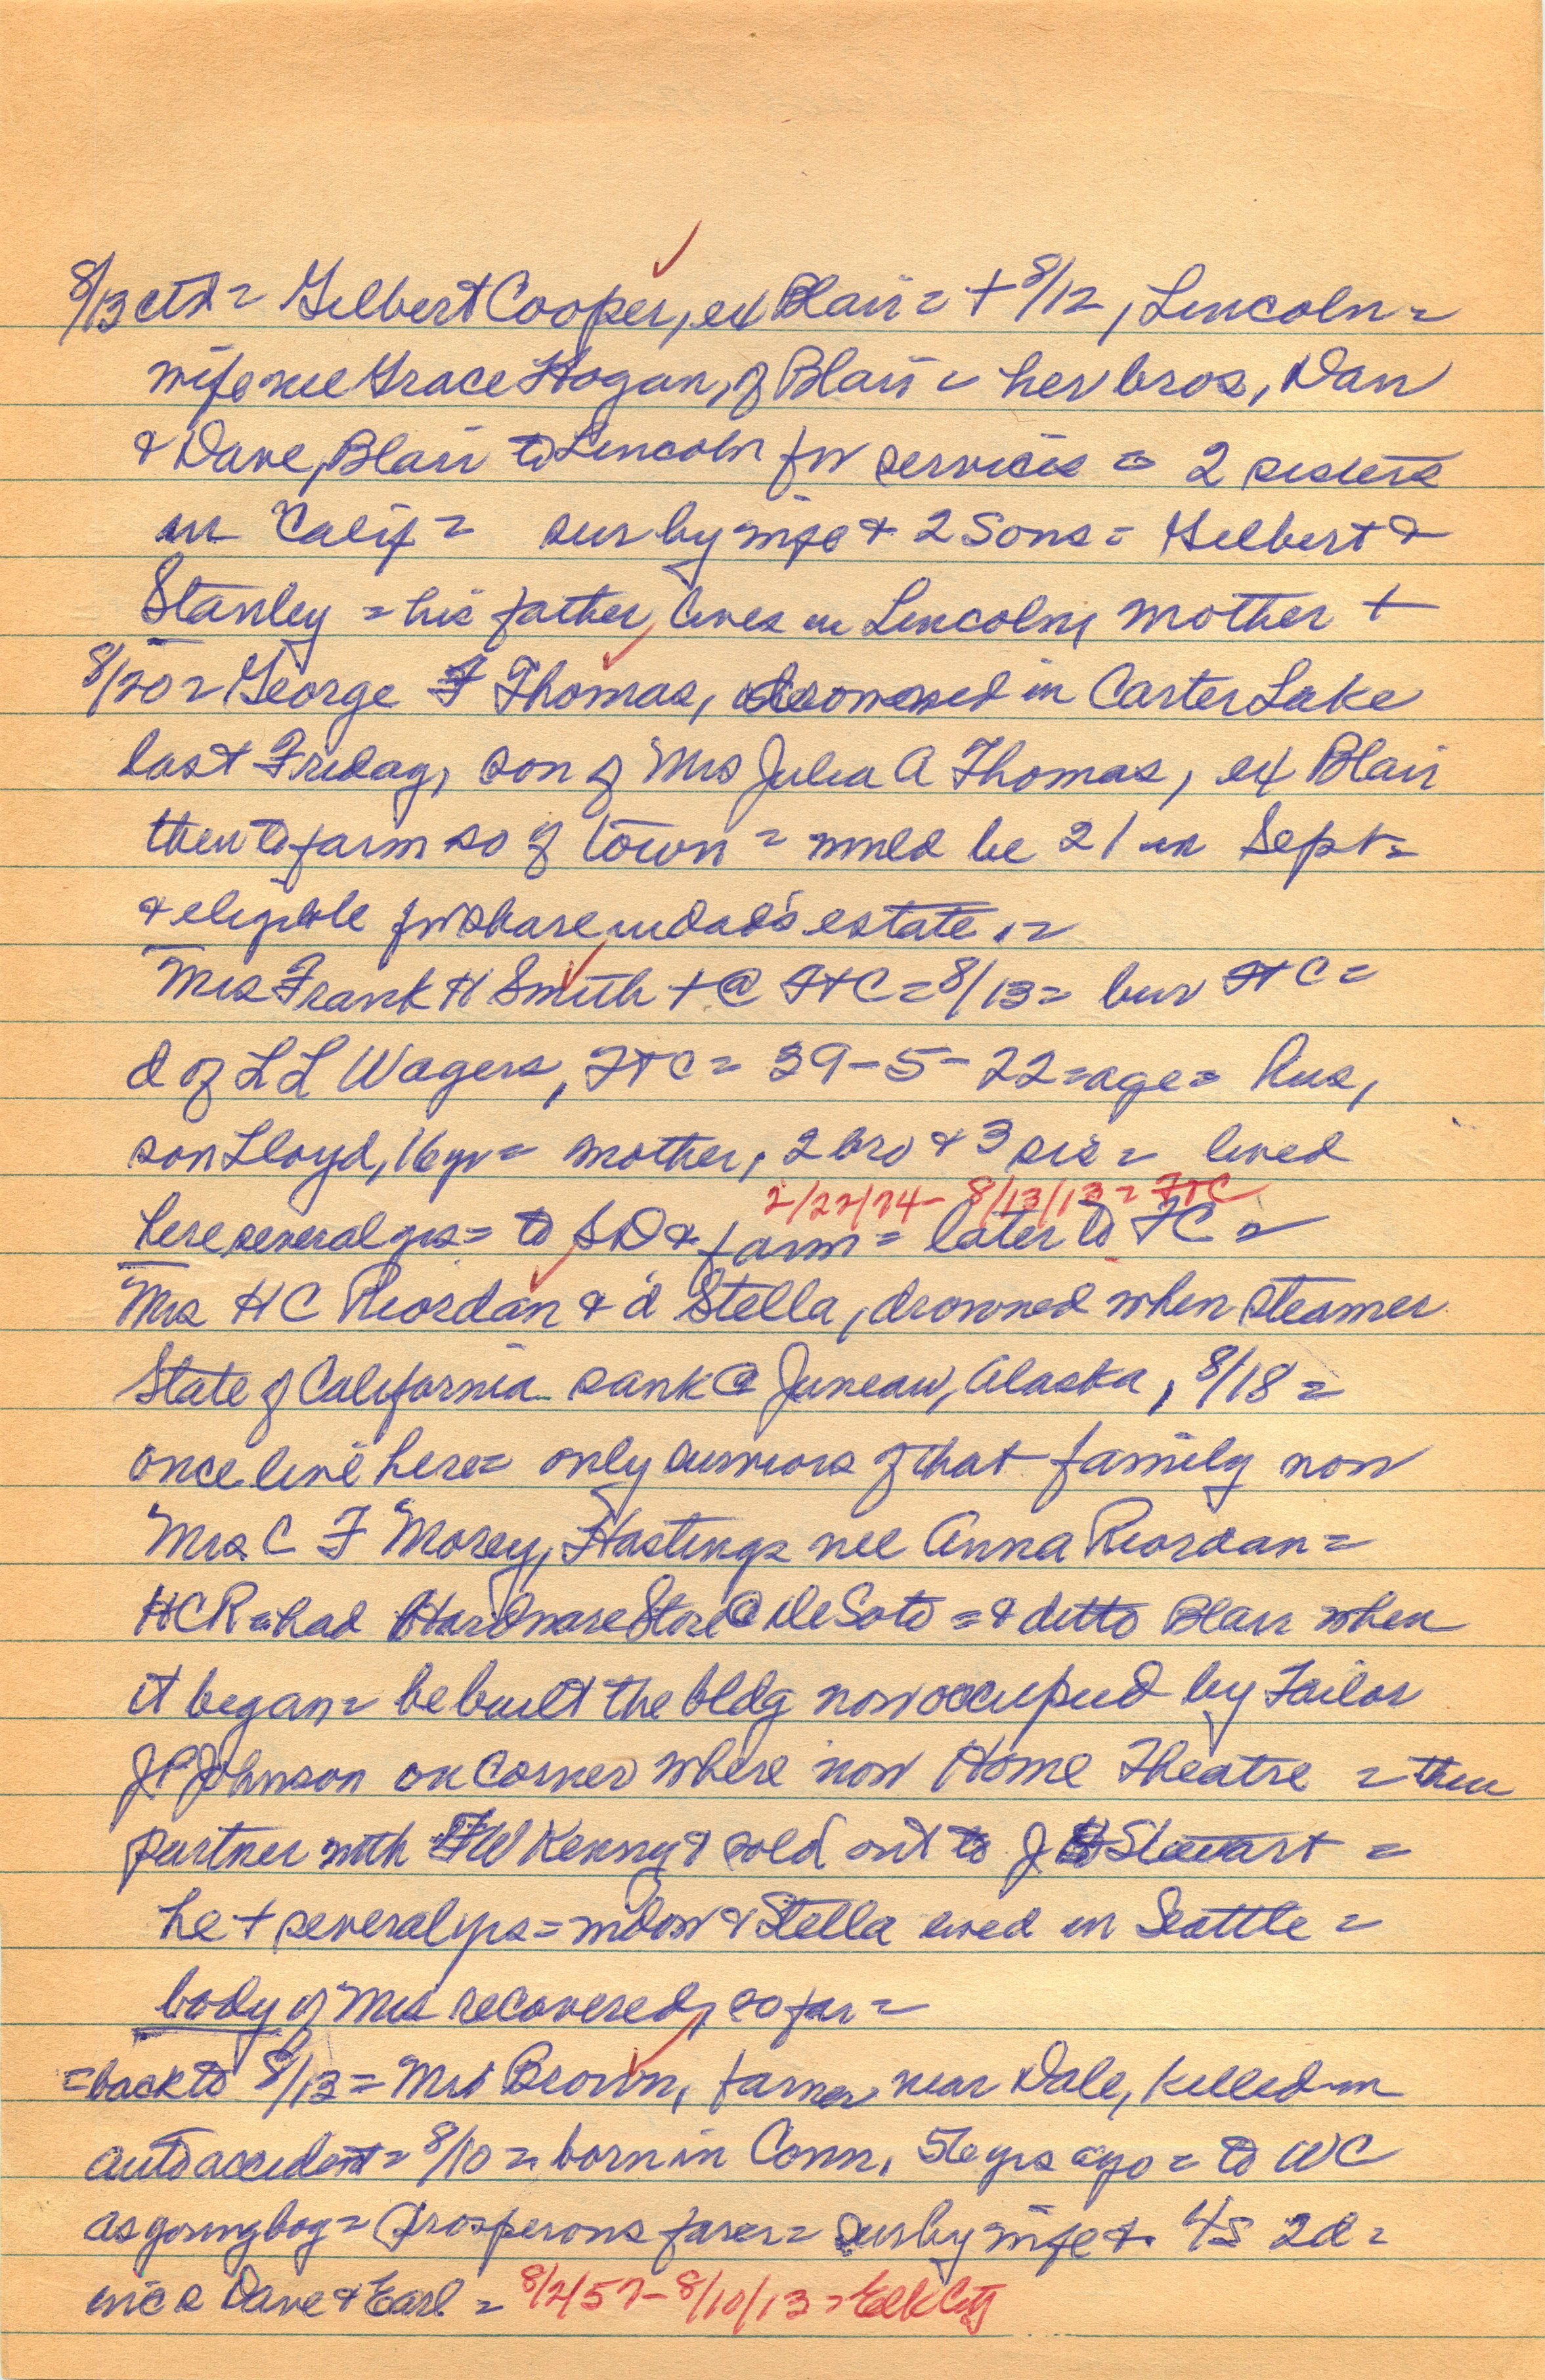 8/13 ctd = Gilbert Cooper, ex Blair = + 8/12, Lincoln =
wife nee Grace Hogan, of Blair = her bros, Dan
& Dave, Blair to Lincoln for services = 2 sisters
in Calif = sur by wife & 2 sons = Gilbert &
Stanley = his father lives in Lincoln, mother +
8/20 = George F Thomas, drowned in Carter Lake
last Friday, son of Mrs Julia A Thomas, ex Blair
then to farm so of town = would be 21 in Sept =
& eligible for share in dad's estate =
Mrs Frank H Smith + @ FtC = 8/13 = bur FtC =
d of L L Wagers, FtC = 39-5-22 = age = hus,
son Lloyd, 16 yr = mother, 2 bro & 3 sis = lived
2/22/74 - 8/13/13 = FtC
here several yrs = to SD & farm = later to FC =
Mrs H C Riordan & d Stella, drowned when steamer
State of California sank @ Juneau, Alaska, 8/18 =
once live here = only survivors of that family now
Mrs C F Morey, Hastings nee Anna Riordan =
HCR = had Hardware Store @ De Soto = & ditto Blair when
it began = he built the bldg now occupied by Tailor
J P Johnson on corner where now Home Theatre = then
partner with FW Kenny & sold out to J H Stewart =
he + several yrs = widow & Stella lived in Seattle =
body of Mrs recovered, so far =
= back to 8/13 = Mrs Brown, farmer near Dale, killed in
auto accident = 8/10 = born in Conn, 56 yrs ago = to WC
as young boy = Prosperous farer = sur by wife & 4s 2d =
inc s Dave & Earl = 8/2/57 - 8/10/13 = Elk City